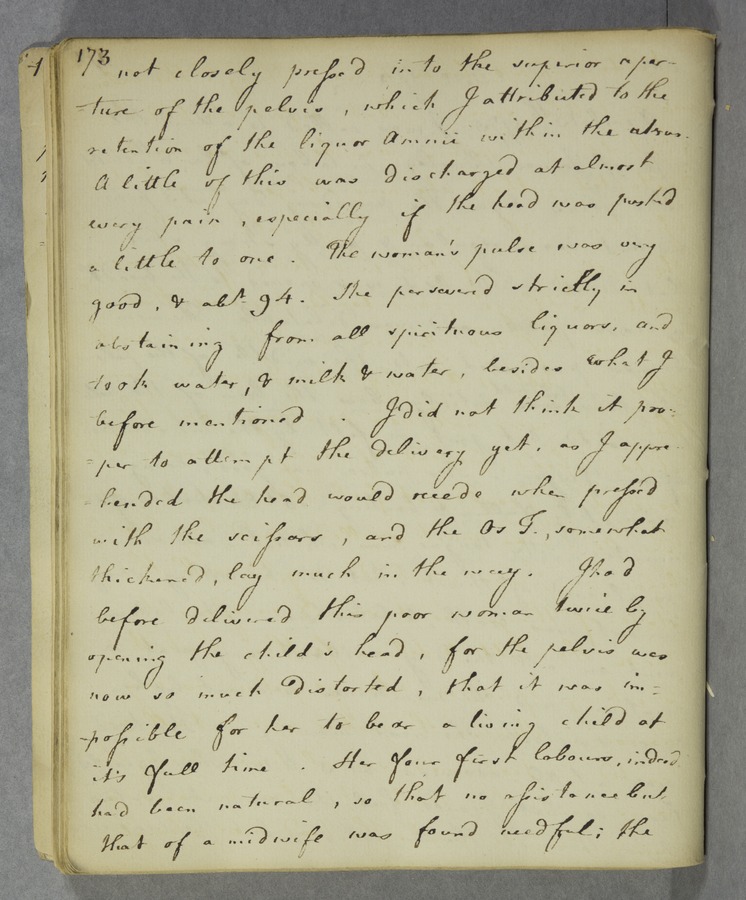 173
not closely pressed into the superior aper-
-ture of the pelvis, which I attributed to the
retention of the liquor Amnii within the uterus.
A little of this was discharged at almost
every pain, especially if the head was pushed
a little to one. The woman's pulse was very
good, & abt. 94. She persevered strictly in
abstaining from all spirituous liquors, and
took water, & milk & water, besides what I
before mentioned. I did not think it pro=
=per to attempt the delivery yet, as I appre-
hended the head would recede when pressed
with the scissars, and the Os T., somewhat
thickened, lay much in the way. I had
before delivered this poor woman twice by
opening the child's head, for the pelvis was
now so much distorted, that it was im=
-possible for her to bear a living child at
it's full time. Her four first labours, indeed
had been natural, so that no assistance but
that of a midwife was found needful; the